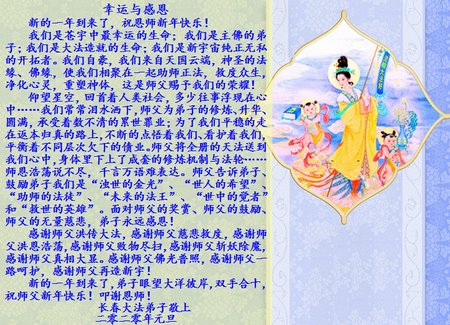 幸运与感恩
新的一年到来了，祝恩师新年快乐！
我们是苍宇中最幸运的生命；我们是主佛的弟
子；我们是大法造就的生命；我们是新宇宙纯正无私
的开拓者。我们自豪，我们来自天国云端，神圣的法
缘、佛缘，使我们相聚在一起助师正法，救度众生，
净化心灵，重塑神体，这是师父赐予我们的荣耀！
仰望星空，回首着人类社会，多少往事浮现在心
中……我们常常泪水洒下，师父为弟子的修炼、升华、
圆满，承受着数不清的累世罪业；为了我们平稳的走
在返本归真的路上，不断的点悟着我们、看护着我们，
平衡着不同层次欠下的债业。师父将全册的天法送到
我们心中，身体里下上了成套的修炼机制与法轮……
师恩浩荡说不尽，千言万语难表达。师父告诉弟子、
鼓励弟子我们是“浊世的金光”、“世人的希望”、
“助师的法徒”、“未来的法王”、“世中的觉者”
和“救世的英雄”。面对师父的奖赏、师父的鼓励、
师父的无量慈悲，弟子永远感恩！
感谢师父洪传大法，感谢师父慈悲救度，感谢师
父洪恩浩荡，感谢师父败物尽扫，感谢师父斩妖除魔，
感谢师父真相大显。感谢师父佛光普照，感谢师父一
路呵护，感谢师父再造新宇！
新的一年到来了，弟子眼望大洋彼岸，双手合十，
祝师父新年快乐！叩谢恩师！
长春大法弟子敬上
二零二零年元旦